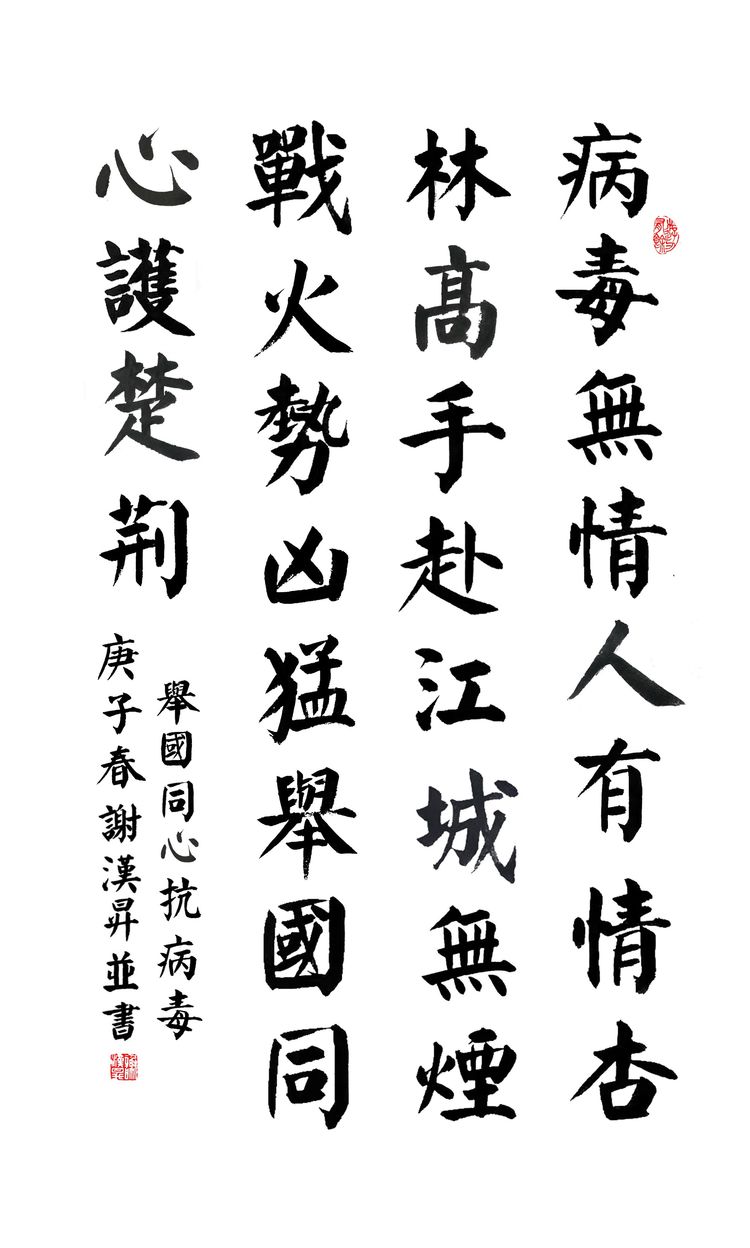 病毒無情人有情杏
林高手赴江城無煙
戰火勢凶猛舉國同
心護楚荆
舉國同心抗病毒
庚子春謝漢昇並書